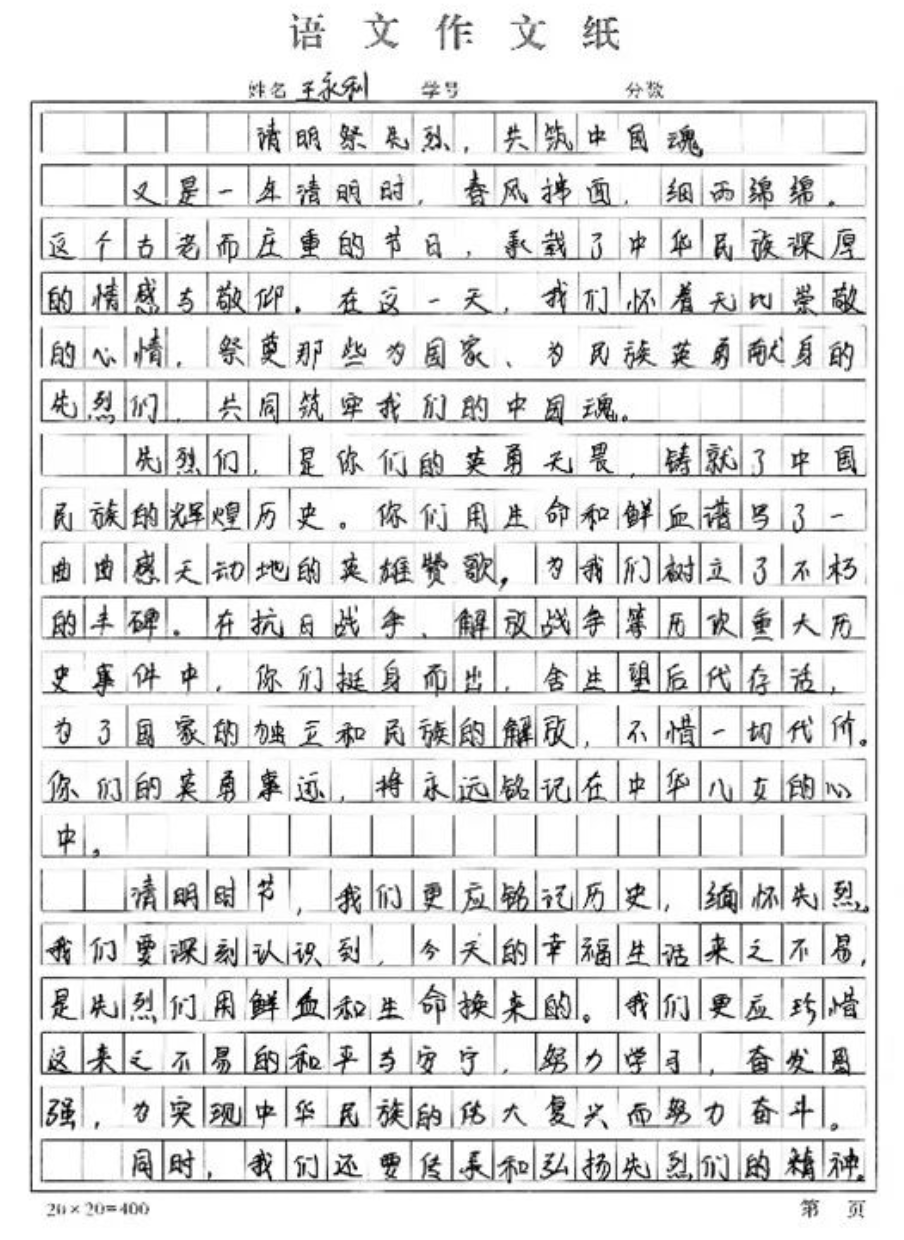 语文作文纸
姓名 王永利 学号 分数
清明祭先烈，共筑中国魂
又是一年清明时，春风拂面，细雨绵绵。
这个古老而庄重的节日，承载了中华民族深厚
的情感与敬仰。在这一天，我们怀着无比崇敬
的心情，祭奠那些为国家、为民族英勇献身的
先烈们，共同筑牢我们的中国魂。
先烈们，是你们的英勇无畏，铸就了中国
民族的辉煌历史。你们用生命和鲜血谱写了一
曲曲感天动地的英雄赞歌，为我们树立了不朽
的丰碑。在抗日战争、解放战争等历次重大历
史事件中，你们挺身而出，舍生望后代存活，
为了国家的独立和民族的解放，不惜一切代价。
你们的英勇事迹，将永远铭记在中华儿女的心
中。
清明时节，我们更应铭记历史，缅怀先烈。
我们要深刻认识到，今天的幸福生活来之不易，
是先烈们用鲜血和生命换来的。我们更应珍惜
这来之不易的和平与安宁，努力学习，奋发图
强，为实现中华民族的伟大复兴而努力奋斗。
同时，我们还要传承和弘扬先烈们的精神。
20×20=400 第 页